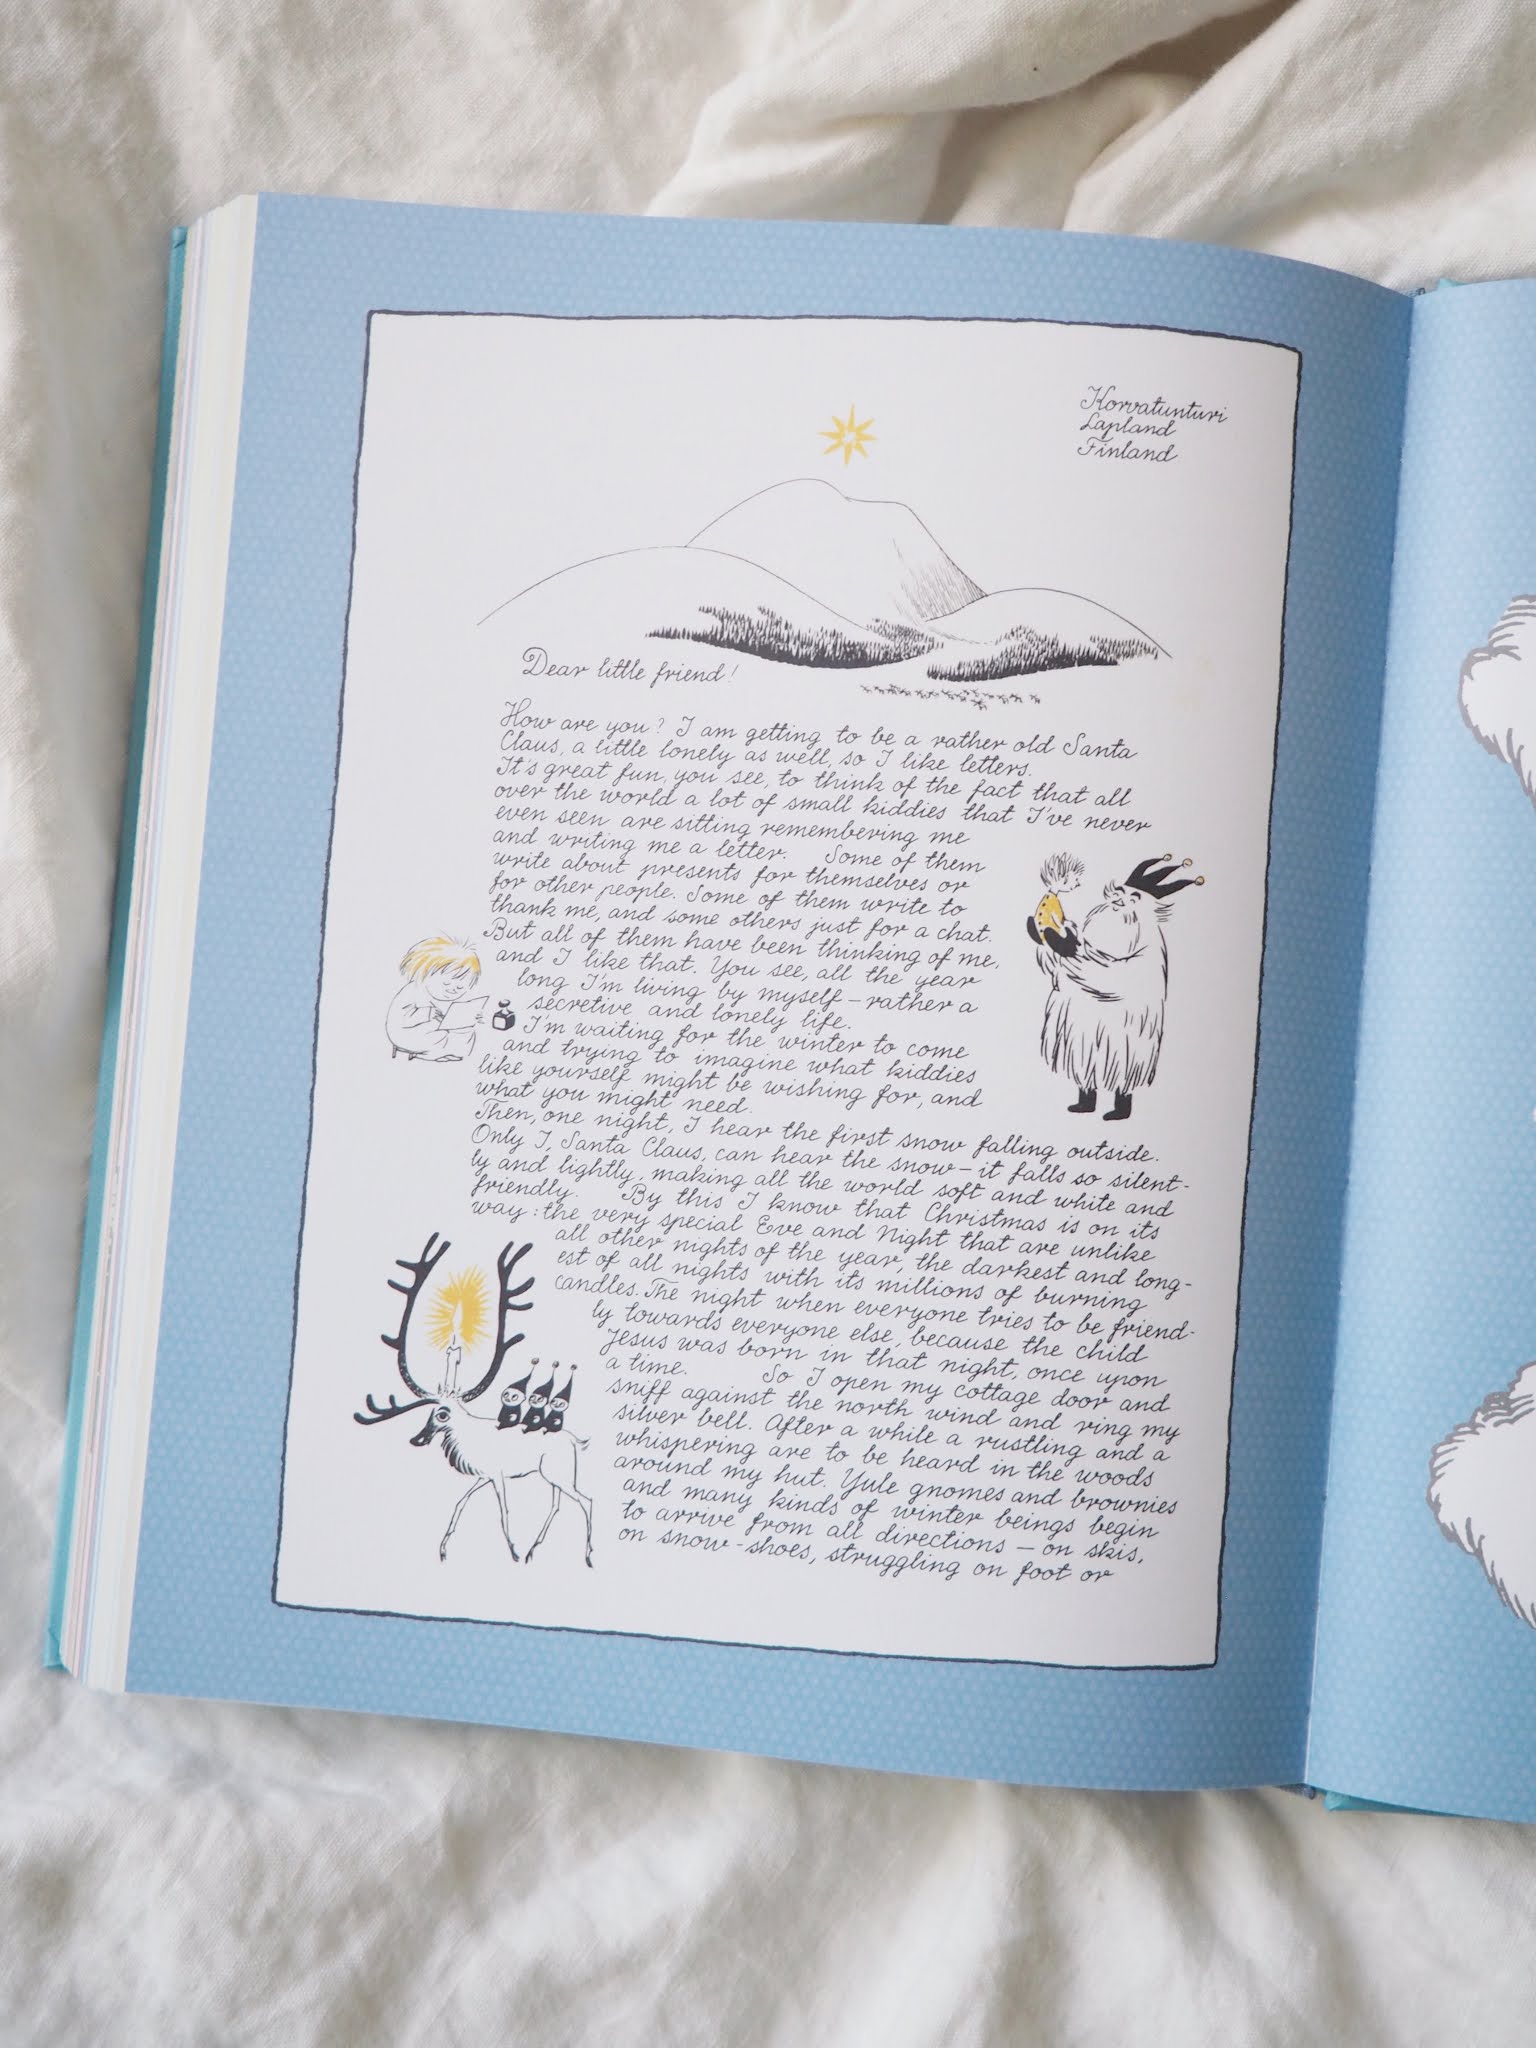 Korvatunturi
Lapland
Finland
Dear little friend!
How are you? I am getting to be a rather old Santa
Claus, a little lonely as well, so I like letters.
It's great fun, you see, to think of the fact that all
over the world a lot of small kiddies that I've never
even seen are sitting remembering me
and writing me a letter. Some of them
write about presents for themselves or
for other people. Some of them write to
thank me, and some others just for a chat.
But all of them have been thinking of me,
and I like that. You see, all the year
long I'm living by myself – rather a
secretive and lonely life.
I'm waiting for the winter to come
and trying to imagine what kiddies
like yourself might be wishing for, and
what you might need.
Then, one night, I hear the first snow falling outside.
Only I, Santa Claus, can hear the snow – it falls so silent-
ly and lightly, making all the world soft and white and
friendly. By this I know that Christmas is on its
way: the very special Eve and Night that are unlike
all other nights of the year, the darkest and long-
est of all nights with its millions of burning
candles. The night when everyone tries to be friend-
ly towards everyone else, because the child
Jesus was born in that night, once upon
a time. So I open my cottage door and
sniff against the north wind and ring my
silver bell. After a while a rustling and a
whispering are to be heard in the woods
around my hut. Yule gnomes and brownies
and many kinds of winter beings begin
to arrive from all directions – on skis,
on snow-shoes, struggling on foot or